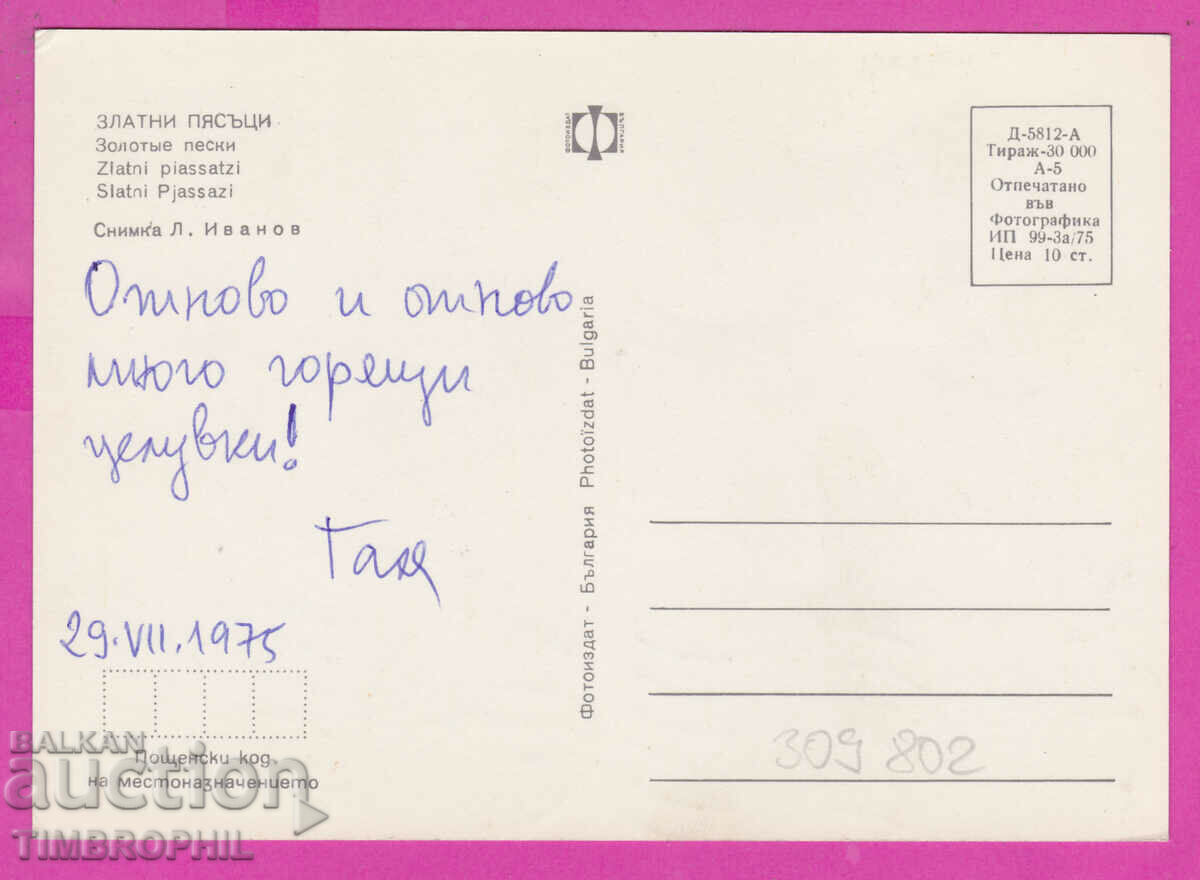 ЗЛАТНИ ПЯСЪЦИ
Золотые пески
Zlatni piassatzi
Slatni Pjassazi
Снимка Л. Иванов
Отново и отново
много горящи
целувки!
Галя
29.VII.1975
Пощенски код
на местоназначението
ФОТОИЗДАТ
БЪЛГАРИЯ
Фотоиздат - България Photoïzdat - Bulgaria
Д-5812-А
Тираж-30 000
А-5
Отпечатано
във
Фотографика
ИП 99-3а/75
Цена 10 ст.
309 802
BALKAN
auction
TIMBROPHIL